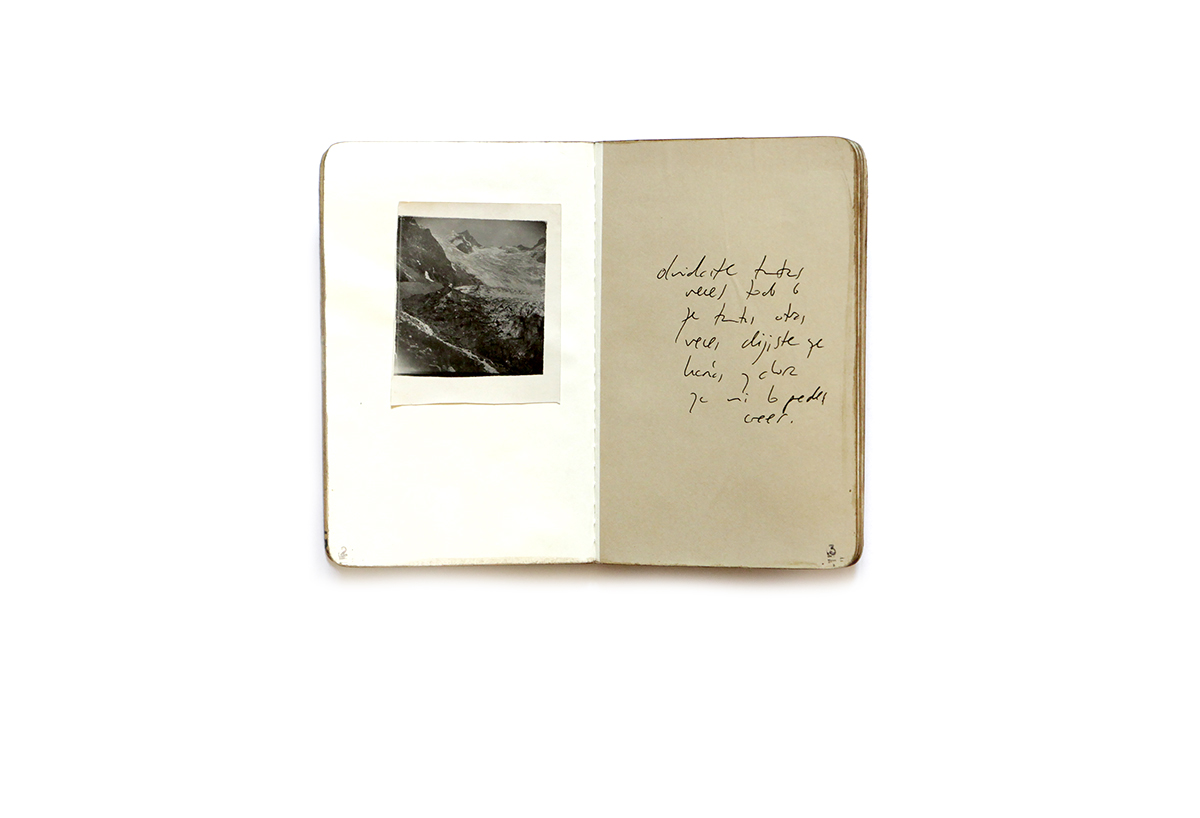 2
olvidaste tantas
veces todo lo
que tantas otras
veces dijiste que
harías y ahora
ya ni lo puedes
creer.
3